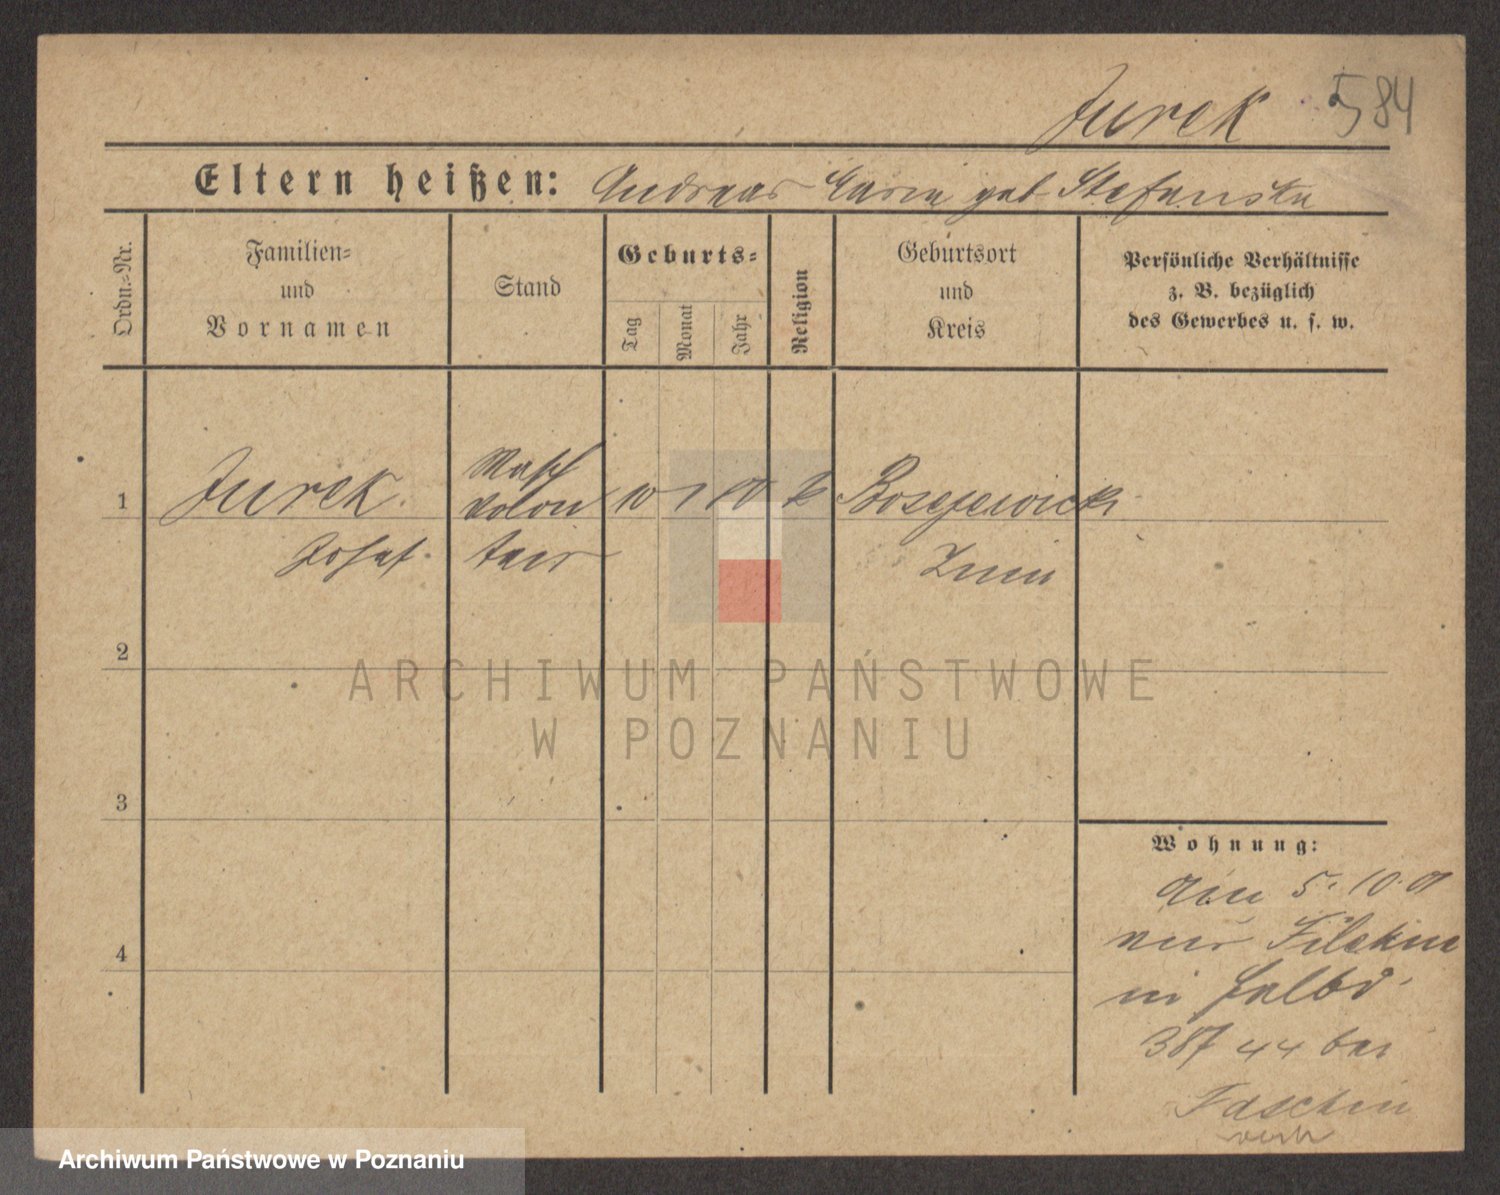 Jurek 584
Eltern heißen: Andreas Maria geb Stefanska
Ordn.-Nr.
Familien-
und
Vornamen
Stand
Geburts-
Tag
Monat
Jahr
Religion
Geburtsort
und
Kreis
Persönliche Verhältnisse
z. B. bezüglich
des Gewerbes u. s. w.
1 Jurek Masch volon 10 k
Josef. tair Znin
2
ARCHIWUM PAŃSTWOWE
W POZNANIU
3
Wohnung:
Am 5. 10. 01
aus
in Halbd.
387 44 bei
4
Archiwum Państwowe w Poznaniu